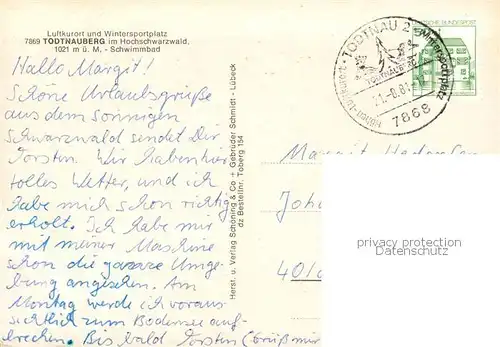 Luftkurort und Wintersportplatz
7869 TODTNAUBERG im Hochschwarzwald,
1021 m ü. M. - Schwimmbad
Hallo Margit!
Schöne Urlaubsgrüße
aus dem sonnigen
Schwarzwald sendet Dir
Torsten. Wir haben hier
tolles Wetter, und ich
habe mich schon richtig
erholt. Ich habe mir
mit meiner Maschine
schon die ganze Umge-
bung angesehen. Am
Montag werde ich voraus-
sichtlich zum Bodensee auf-
brechen. Bis bald Torsten (Grüß mir
Herst. u. Verlag Schöning & Co + Gebrüder Schmidt - Lübeck
dz Bestellnr. Toberg 164
TODTNAU 2
Wintersportplatz
Höhen-Luftkurort
TODTNAUBERG
21.-8.81
7868
DEUTSCHE BUNDESPOST
Margit
Joh
40/
privacy protection
Datenschutz